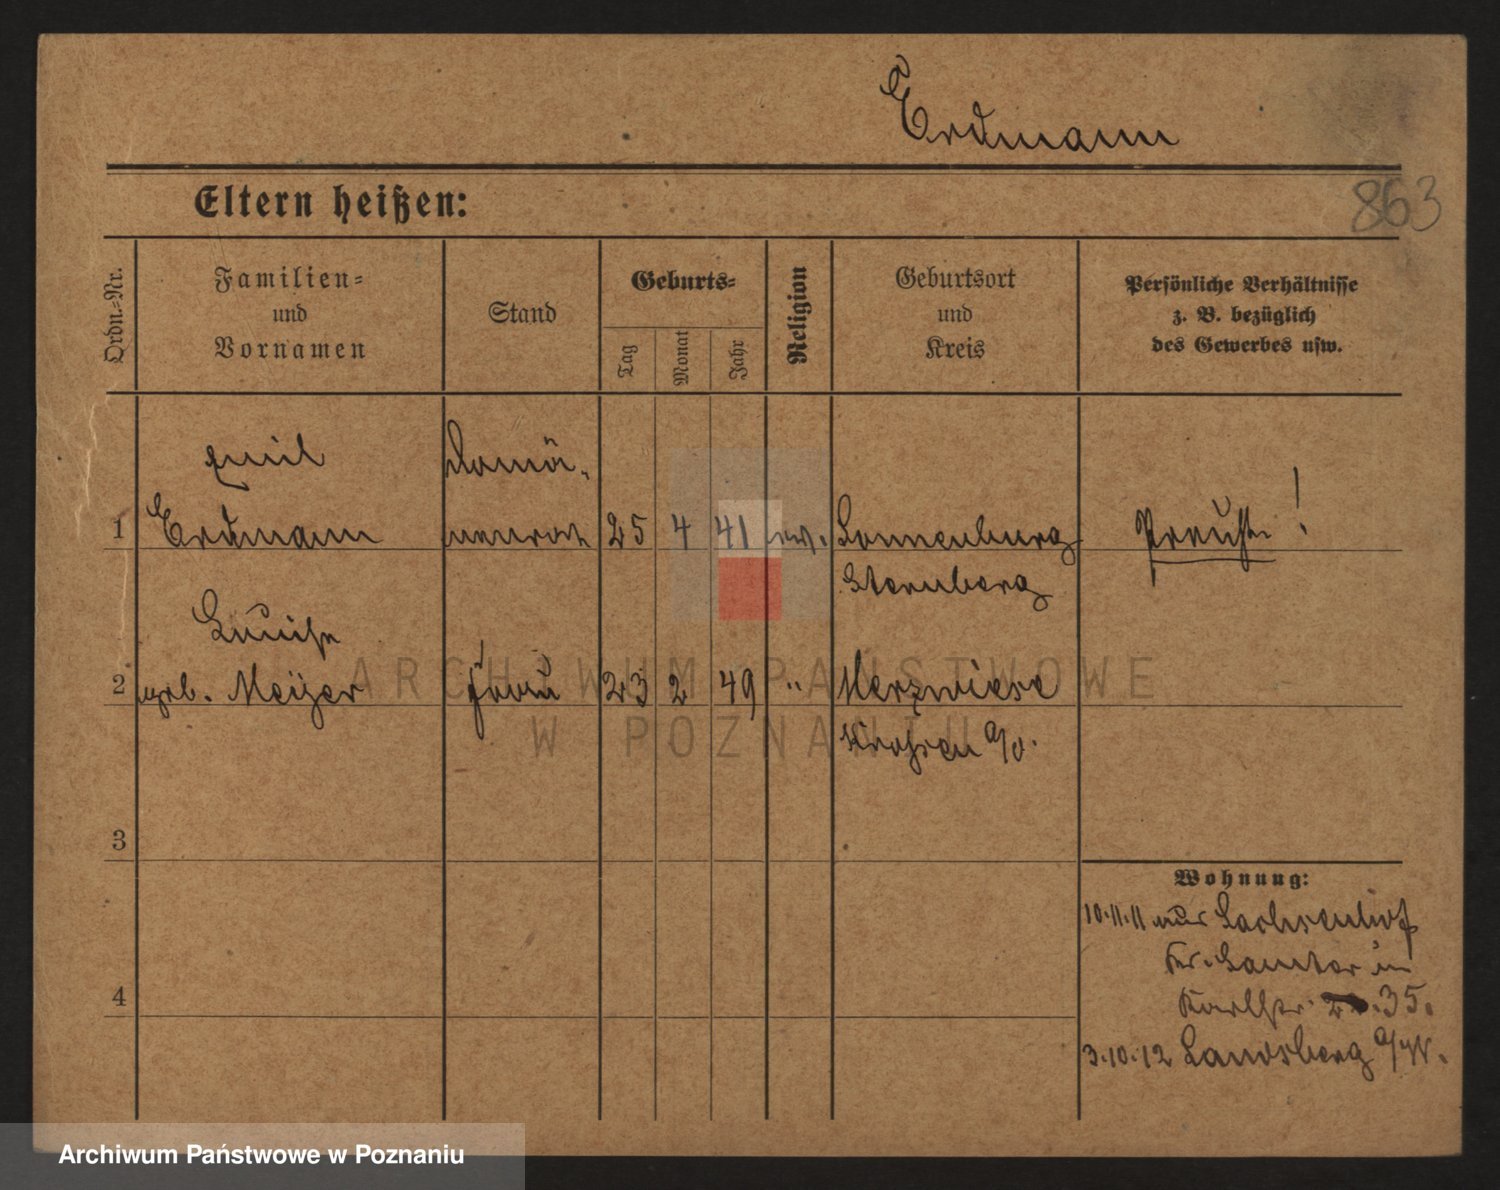 Erdmann
Eltern heißen:
863
Ordn.-Nr.
Familien-
und
Vornamen
Stand
Geburts-
Tag
Monat
Jahr
Religion
Geburtsort
und
Kreis
Persönliche Verhältnisse
z. B. bezüglich
des Gewerbes usw.
Emil
Domä-
1 Erdmann nenrat 25 4 41 ev. Sonnenburg Preuße!
Sternberg
Louise
2 geb. Meijer Frau 23 2 49 " Merzwiese
Krossen a/O.
3
4
Wohnung:
10.11.11 aus Sachsenhof
Kr. Samter in
Karlstr. 35.
3.10.12 Landsberg a/W.
ARCHIWUM PAŃSTWOWE
W POZNANIU
Archiwum Państwowe w Poznaniu